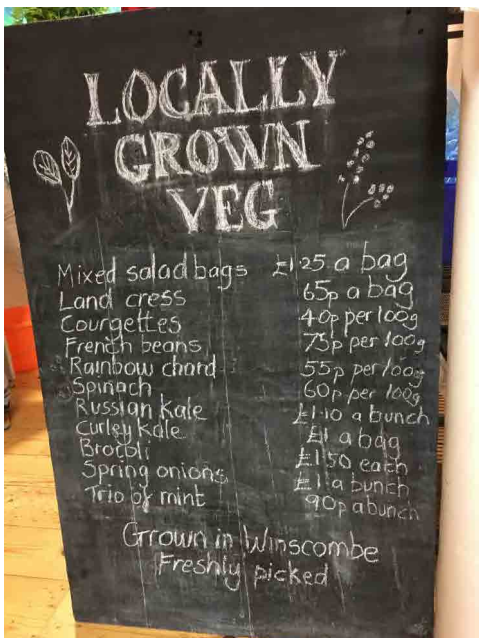 LOCALLY
GROWN
VEG
Mixed salad bags £1.25 a bag
Land cress 65p a bag
Courgettes 40p per 100g
French beans 75p per 100g
Rainbow chard 55p per 100g
Spinach 60p per 100g
Russian Kale £1.10 a bunch
Curley Kale £1 a bag
Brocoli £1.50 each
Spring onions £1 a bunch
Trio of mint 90p a bunch
Grown in Winscombe
Freshly picked